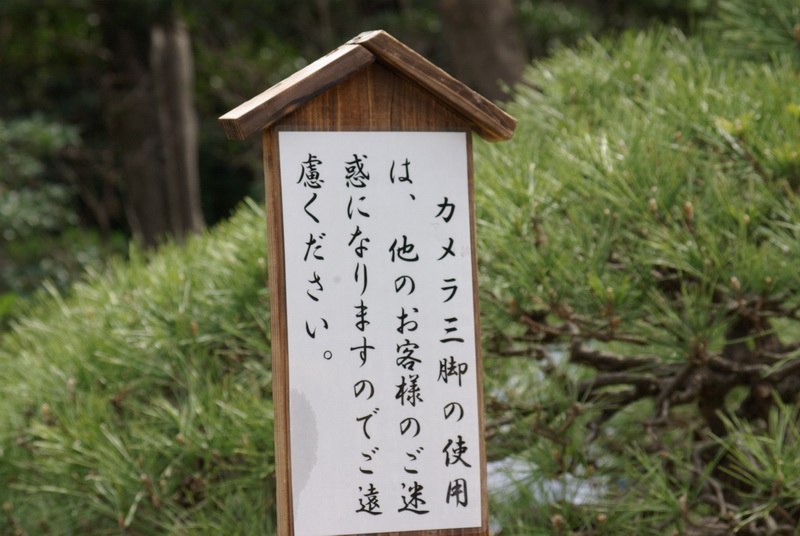 カメラ三脚の使用
は、他のお客様のご迷
惑になりますのでご遠
慮ください。